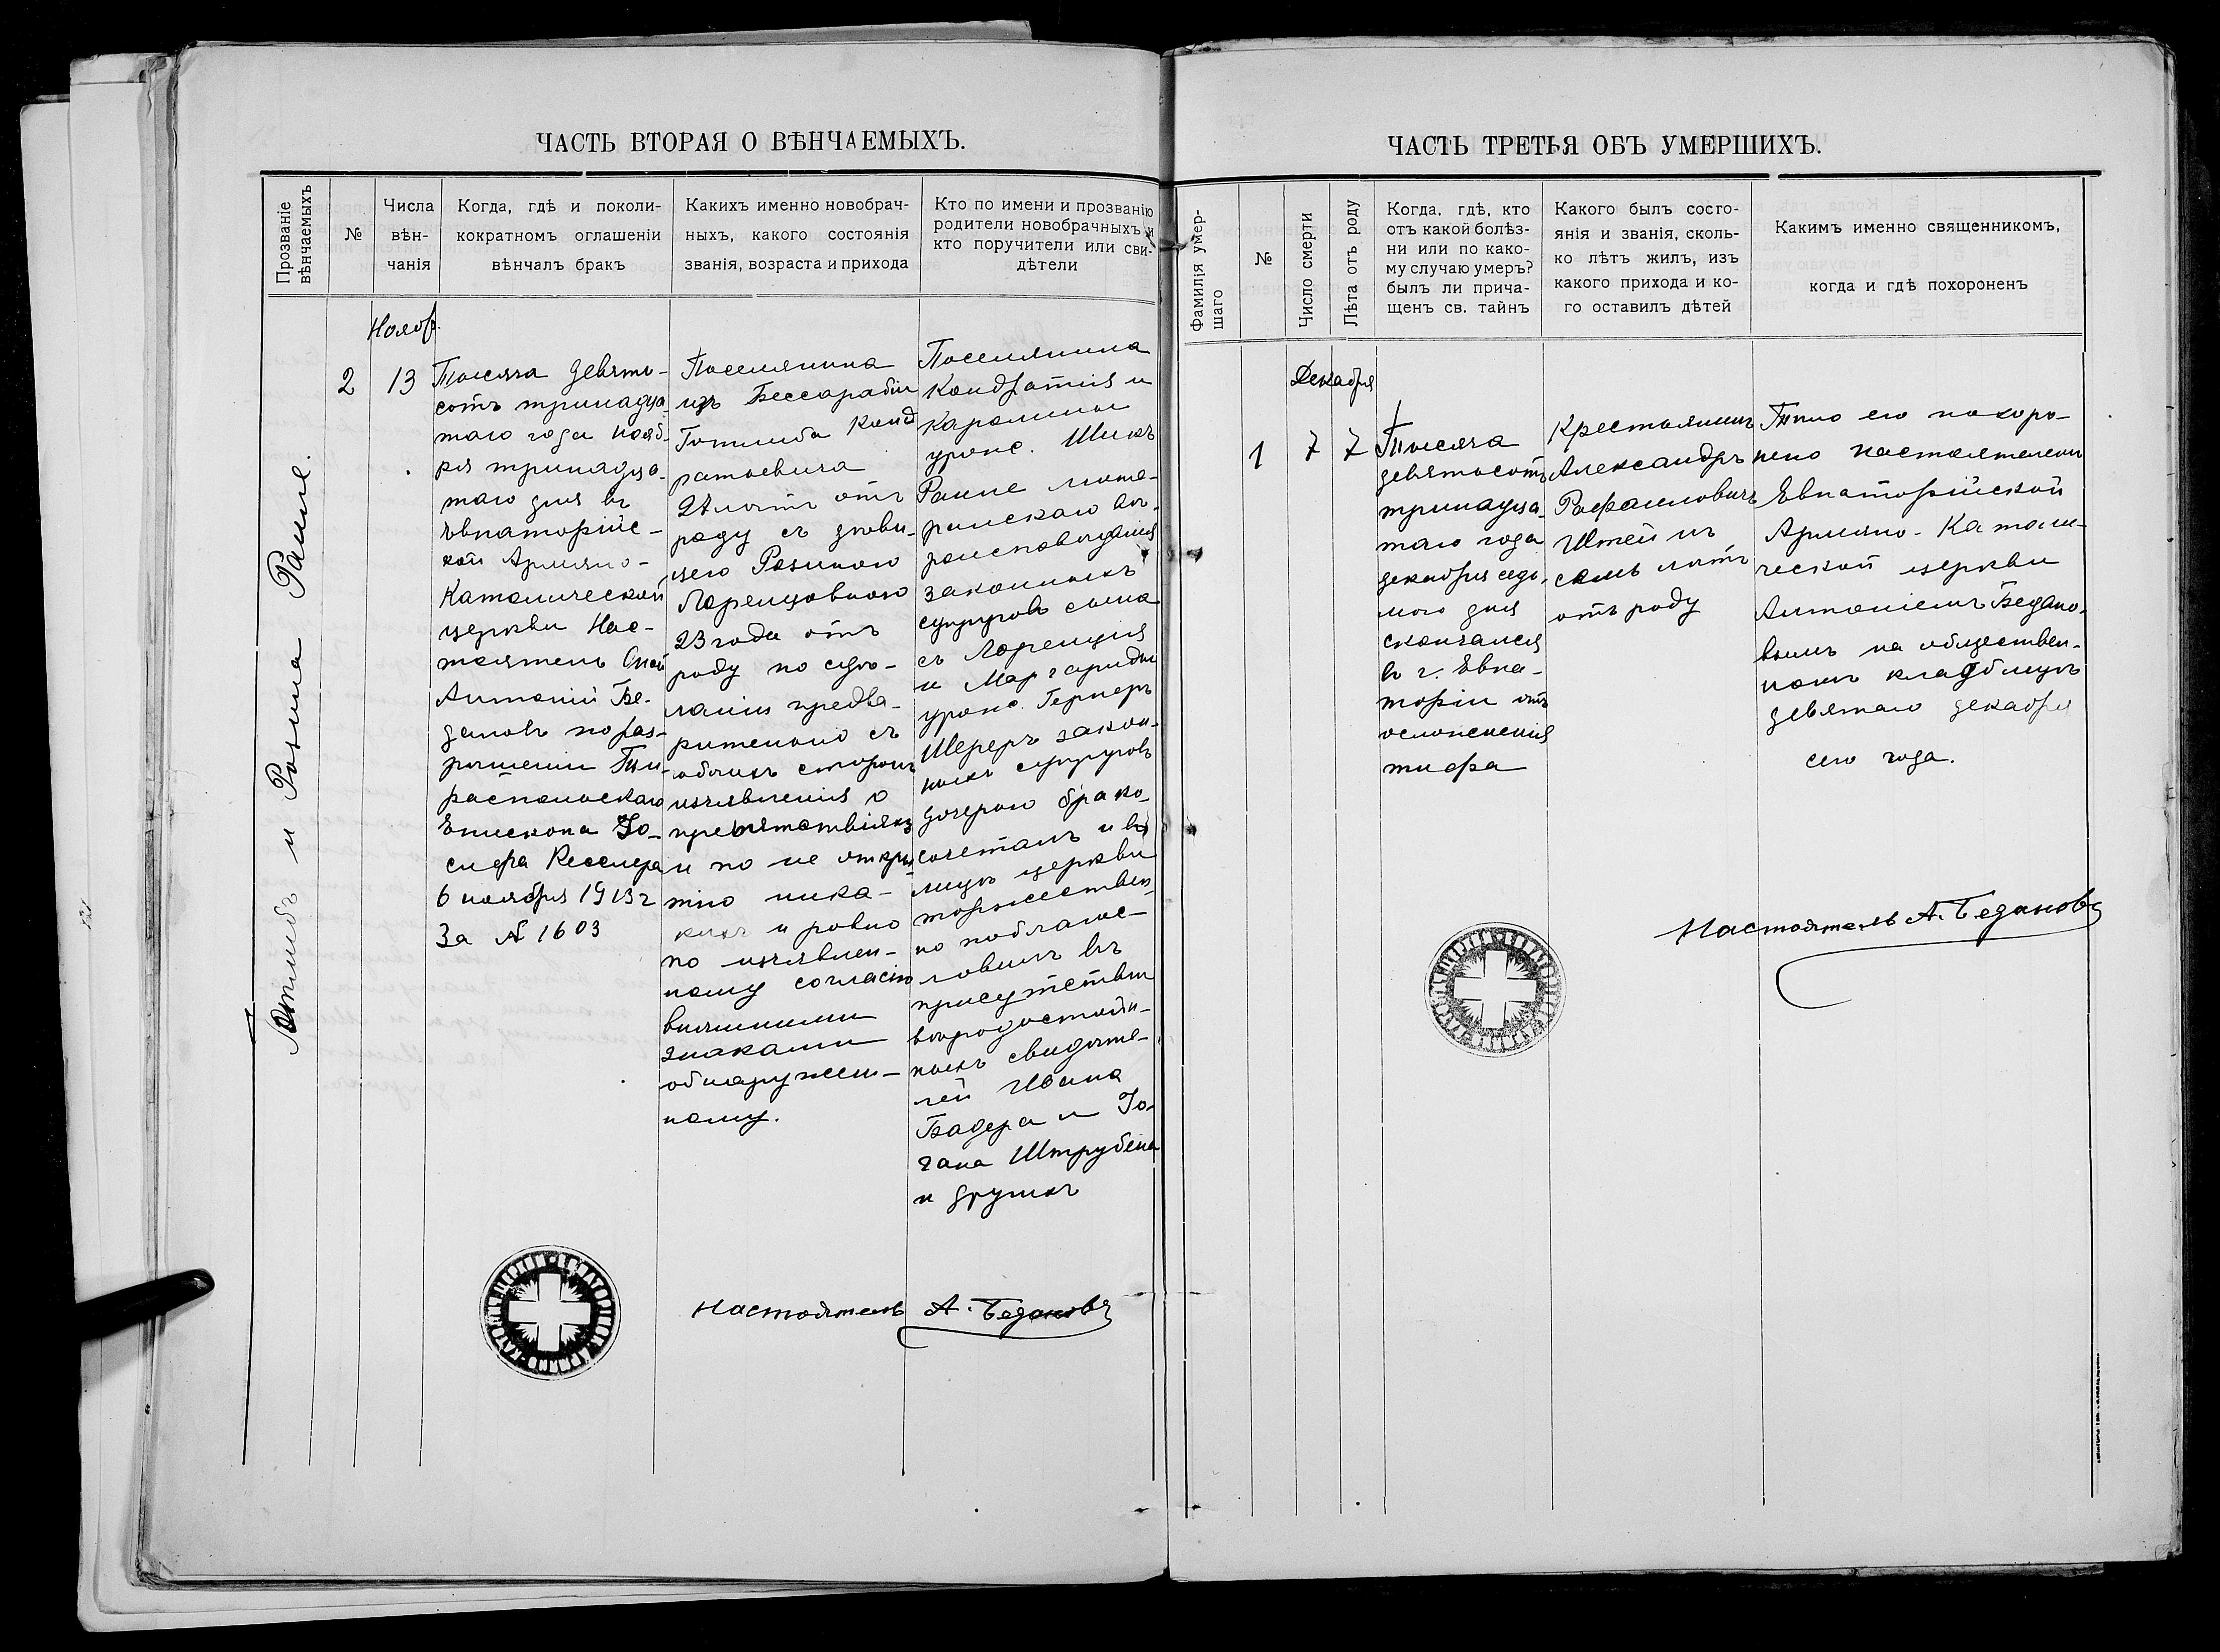 ЧАСТЬ ВТОРАЯ О ВѢНЧАЕМЫХЪ.
Прозваніе
вѣнчаемыхъ
№
Числа
вѣн-
чанія
Когда, гдѣ и поколи-
кократномъ оглашеніи
вѣнчалъ бракъ
Какихъ именно новобрач-
ныхъ, какого состоянія
званія, возраста и прихода
Кто по имени и прозванію
родители новобрачныхъ и
кто поручители или сви-
дѣтели
Готлибъ и Розина Раиле.
2
Нояб.
13
Тысяча девять-
сотъ тринадца-
таго года нояб-
ря тринадца-
таго дня въ
Евпаторійс-
кой Армяно-
Католической
церкви Нас-
тоятель Оной
Антоній Бе-
дановъ по раз-
рѣшенiи Ти-
распольскаго
Епископа Іо-
сифа Кесслера
6 ноября 1913 г
За № 1603
Поселянина
изъ Бессарабіи
Готлиба Конд
ратьевича
27 лѣтъ отъ
роду съ дѣви-
цею Розиною
Лоренцовною
23 года отъ
роду по сдѣ-
ланіи предва-
рительно съ
обоихъ сторонъ
изъявленія о
препятствіяхъ
и по не откры
тію ника-
кихъ и ровно
по изъявлен-
ному согласію
внѣшними
знаками
обнаружен-
ному.
Поселянина
Кондратія и
Каролины
урожд. Шикъ
Раиле люте-
ранскаго вѣ-
роисповѣданія
законныхъ
супруговъ сына
съ Лоренція
и Маргариды
урожд. Гернеръ
Шереръ закон-
ныхъ супруговъ
дочерью брако-
сочеталъ и въ
лицѣ церкви
торжествен-
но поблагос-
ловилъ въ
присутствіи
вѣродостой-
ныхъ свидѣте-
лей Ивана
Бадера и Іо-
гана Штрубена
и другихъ
Настоятель А. Бедановъ
ЧАСТЬ ТРЕТЬЯ ОБЪ УМЕРШИХЪ.
Фамилія умер-
шаго
№
Число смерти
Лѣта отъ роду
Когда, гдѣ, кто
отъ какой болѣз-
ни или по како-
му случаю умеръ?
былъ ли прича-
щенъ св. тайнъ
Какого былъ состо-
янія и званія, сколь-
ко лѣтъ жилъ, изъ
какого прихода и ко-
го оставилъ дѣтей
Какимъ именно священникомъ,
когда и гдѣ похороненъ
1
Декабря
7
7
Тысяча
девятьсотъ
тринадца-
таго года
декабря седь-
мого дня
скончался
въ г. Евпа-
торіи отъ
осложненія
тифа
Крестьянинъ
Александръ
Рафаиловичъ
Штейнъ
семь лѣтъ
отъ роду
Тѣло его похоро-
нено настоятелемъ
Евпаторійской
Армяно-Католи-
ческой церкви
Антоніемъ Бедано-
вымъ на обществен-
номъ кладбищѣ
девятаго декабря
сего года.
Настоятель А. Бедановъ